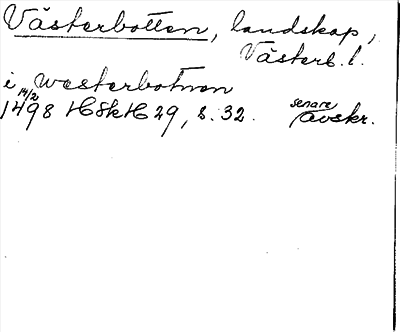 Västerbotten, landskap,
Västerb. l.
i westerbotnon
14/2
1498 HSkH 29, s. 32. senare avskr.